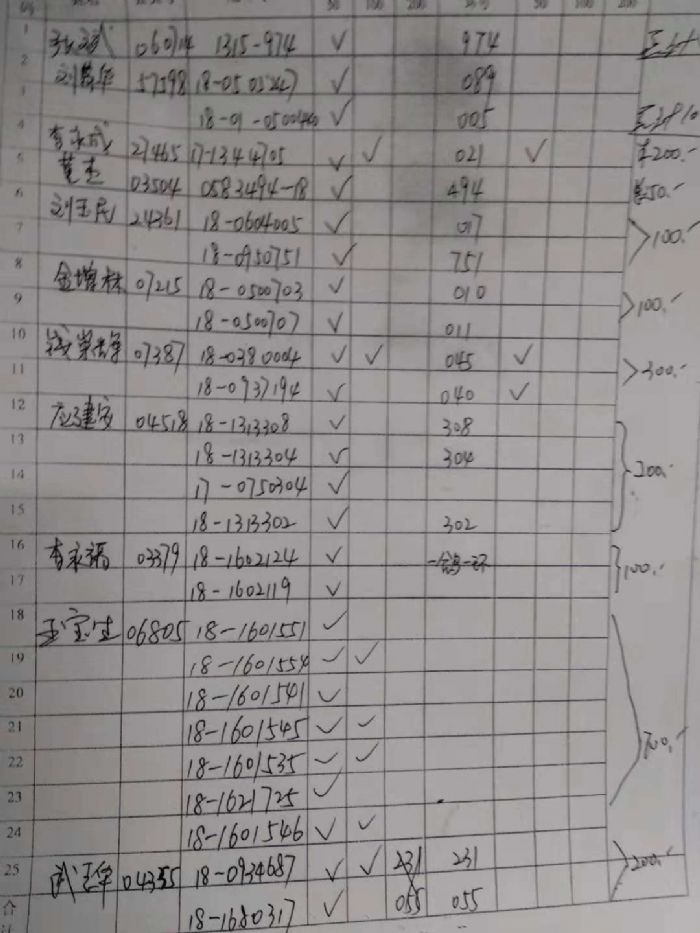 50 100 200 50 100 200
1 060714 1315-974 ✓ 974
2 57598 ✓ 089
3 ✓ 005
4 李永成 27465 17-1344705 ✓ ✓ 021 ✓ ¥200.-
5 03504 0583494-18 ✓ 494 ¥50.-
6 刘玉民 24361 18-0604005 ✓ 017
7 18-0950751 ✓ 751 >100.-
8 金增林 07215 18-0500703 ✓ 010
9 18-0500707 ✓ 011 >100.-
10 07387 18-0380004 ✓ ✓ 045 ✓
11 18-0937194 ✓ 040 ✓ >300.-
12 应建安 04518 18-1313308 ✓ 308
13 18-1313304 ✓ 304
14 17-0750304 ✓ 200.-
15 18-1313302 ✓ 302
16 李永福 03379 18-1602124 ✓
17 18-1602119 ✓ 100.-
18 王宝生 06805 18-1601551 ✓
19 18-1601554 ✓ ✓
20 18-1601541 ✓
21 18-1601545 ✓ ✓
22 18-1601535 ✓ ✓ 700.-
23 18-1621725 ✓
24 18-1601546 ✓ ✓
25 武玉华 04355 18-0934687 ✓ ✓ 231 231 200.-
合 18-1680317 ✓ 055 055